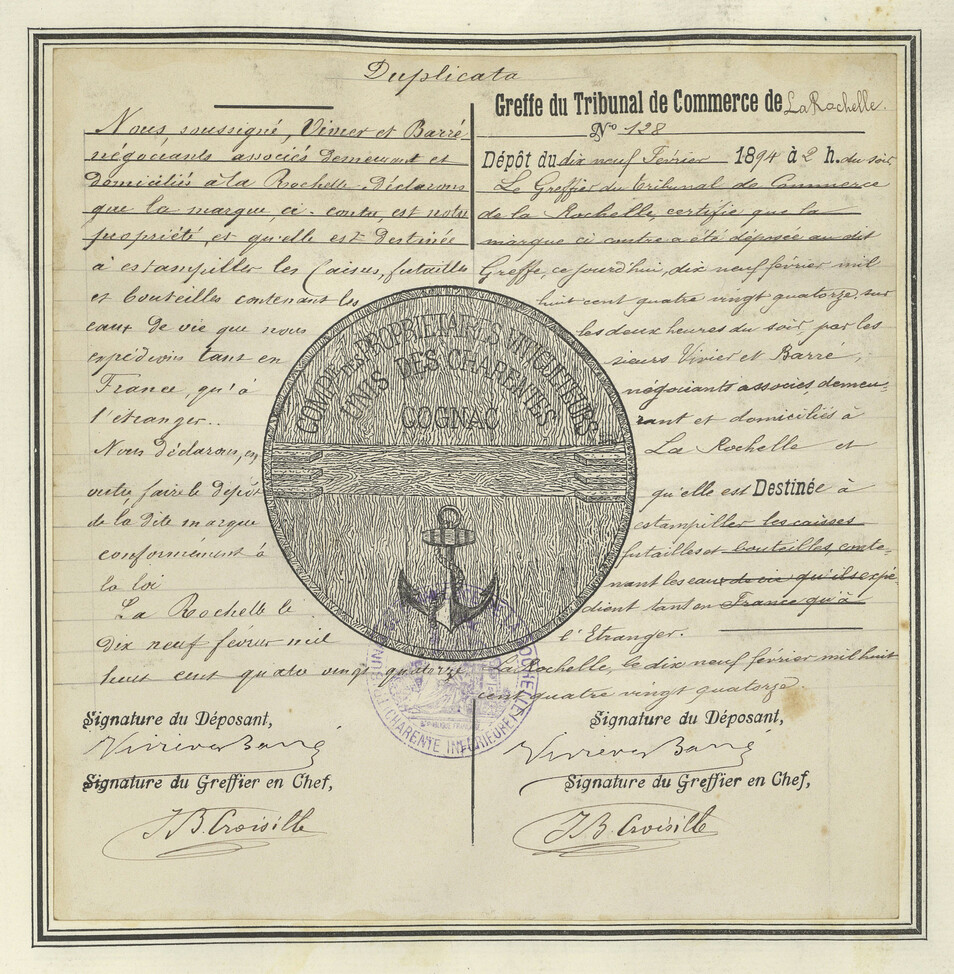 Duplicata
Nous soussigné, Vivier et Barré
négociants associés demeurant et
domiciliés à la Rochelle. Déclarons
que la marque, ci-contre, est notre
propriété, et qu'elle est destinée
à estampiller les Caisses, futailles
et bouteilles contenant les
eaux de vie que nous
expédions tant en
France qu'à
l'étranger..
Nous déclarons, en
outre, faire le dépôt
de la dite marque
conformément à
la loi
La Rochelle le
dix neuf février mil
huit cent quatre vingt quatorze
Signature du Déposant,
Vivier et Barré
Signature du Greffier en Chef,
J.B. Croisille
Greffe du Tribunal de Commerce de La Rochelle.
N° 128
Dépôt du dix neuf Février 1894 à 2 h. du soir
Le Greffier du tribunal de Commerce
de la Rochelle, certifie que la
marque ci contre a été déposée au dit
Greffe, ce jourd'hui, dix neuf février mil
huit cent quatre vingt quatorze, sur
les deux heures du soir, par les
sieurs Vivier et Barré,
négociants associés, demeu-
rant et domiciliés à
La Rochelle et
qu'elle est Destinée à
estampiller les caisses
futailles et bouteilles conte-
nant les eaux de vie qu'ils expé
dient tant en France qu'à
l'Etranger.
La Rochelle, le dix neuf février mil huit
cent quatre vingt quatorze.
Signature du Déposant,
Vivier et Barré
Signature du Greffier en Chef,
J.B. Croisille
COMPIE DES PROPRIETAIRES VINICULTEURS
UNIS DES CHARENTES
COGNAC
(CHARENTE INFERIEURE)